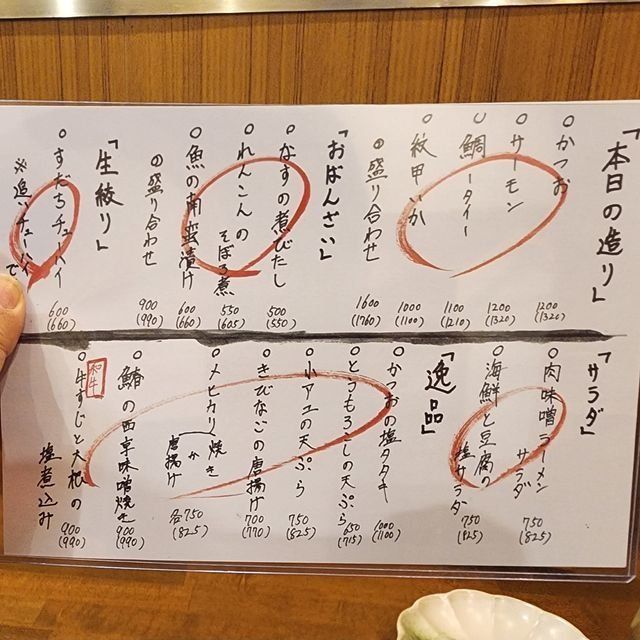 「本日の造り」
○かつお
1200
(1320)
○サーモン
1200
(1320)
○鯛
1100
(1210)
○紋甲いか
1000
(1100)
◎盛り合わせ
1600
(1760)
「おばんざい」
○なすの煮びたし
500
(550)
○れんこんの
そぼろ煮
550
(605)
○魚の南蛮漬け
600
(660)
◎盛り合わせ
900
(990)
「生絞り」
○すだちチューハイ
600
(660)
※追いチューハイ
で
「サラダ」
○肉味噌ラーメン
サラダ
750
(825)
○海鮮と豆腐の
塩サラダ
750
(825)
「逸品」
○かつおの塩タタキ
1000
(1100)
○とうもろこしの天ぷら
650
(715)
○小アユの天ぷら
750
(825)
○きびなごの唐揚げ
700
(770)
○メヒカリ
焼き
か
唐揚げ
各750
(825)
○鰆の西京味噌焼き
900
(990)
和牛
○牛すじと大根の
塩煮込み
900
(990)